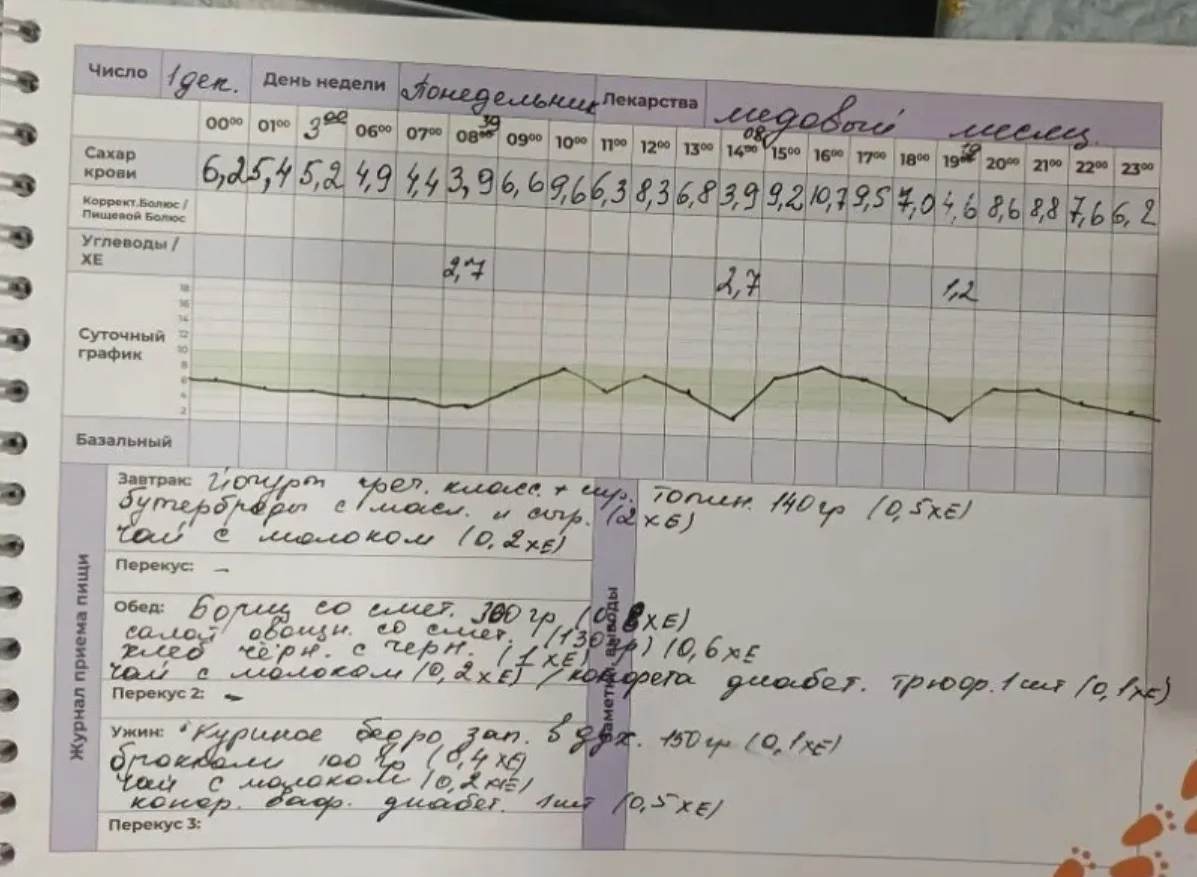 Число 1 дек. День недели Понедельник Лекарства медовый месяц.
00⁰⁰ 01⁰⁰ 3⁰⁰ 06⁰⁰ 07⁰⁰ 08³⁹ 09⁰⁰ 10⁰⁰ 11⁰⁰ 12⁰⁰ 13⁰⁰ 14⁰⁸ 15⁰⁰ 16⁰⁰ 17⁰⁰ 18⁰⁰ 19¹⁹ 20⁰⁰ 21⁰⁰ 22⁰⁰ 23⁰⁰
Сахар крови 6,2 5,4 5,2 4,9 4,4 3,9 6,6 9,6 6,3 8,3 6,8 3,9 9,2 10,7 9,5 7,0 4,6 8,6 8,8 7,6 6,2
Коррект.Болюс /
Пищевой Болюс
Углеводы /
ХЕ 2,7 2,7 1,2
Суточный
график
18
16
14
12
10
8
6
4
2
Базальный
Журнал приема пищи
Завтрак: Йогурт греч. класс. + сыр. топлн. 140 гр (0,5 хЕ)
бутерброды с масл. и сыр. (2 хЕ)
чай с молоком (0,2 хЕ)
Перекус: –
Обед: Борщ со смет. 300 гр (0,8 хЕ)
салат овощн. со смет. (130 гр) (0,6 хЕ
хлеб чёрн. с черн. (1 хЕ)
чай с молоком (0,2 хЕ) / конфета диабет. трюф. 1 шт (0,1 хЕ)
Перекус 2: –
Ужин: Куриное бедро зап. в дух. 150 гр (0,1 хЕ)
брокколи 100 гр (0,4 хЕ)
чай с молоком (0,2 хЕ)
конф. ваф. диабет. 1 шт (0,5 хЕ)
Перекус 3:
Заметки, выводы